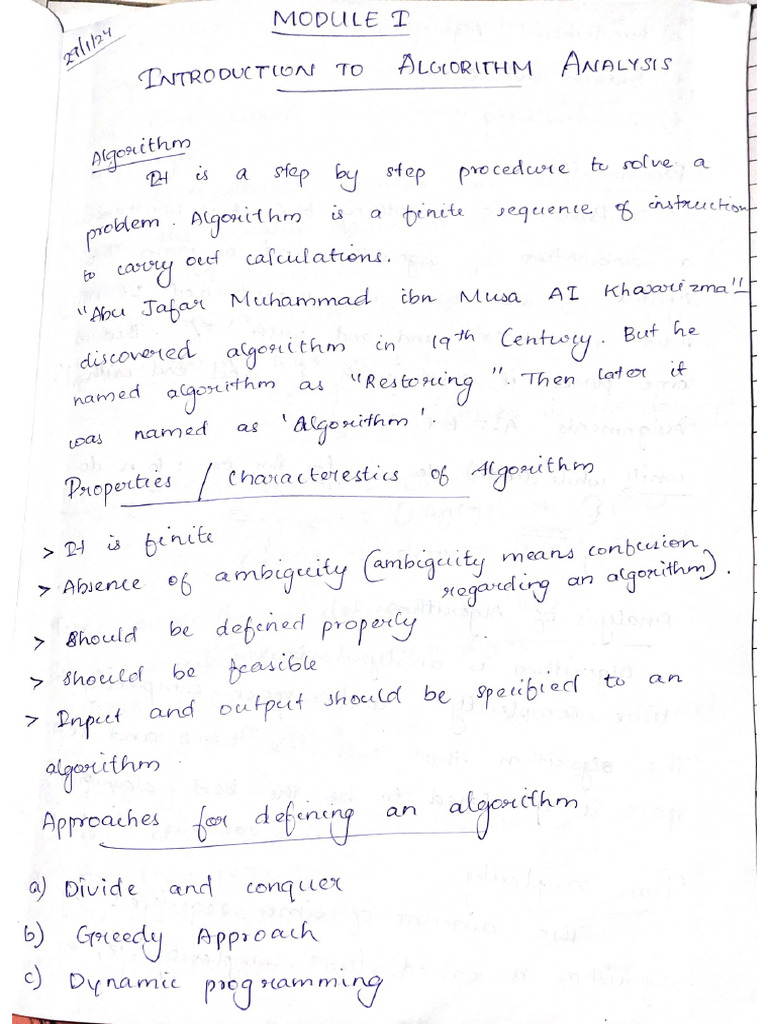 MODULE I
27/1/24
INTRODUCTION TO ALGORITHM ANALYSIS
Algorithm
It is a step by step procedure to solve a
problem. Algorithm is a finite sequence of instruction
to carry out calculations.
"Abu Jafar Muhammad ibn Musa AI Khawarizma"
discovered algorithm in 19th Century. But he
named algorithm as "Restoring". Then later it
was named as 'Algorithm'.
Properties / Characterestics of Algorithm
> It is finite
> Absence of ambiguity (ambiguity means confusion
regarding an algorithm).
> Should be defined properly
> Should be feasible
> Input and output should be specified to an
algorithm.
Approaches for defining an algorithm
a) Divide and conquer
b) Greedy Approach
c) Dynamic programming